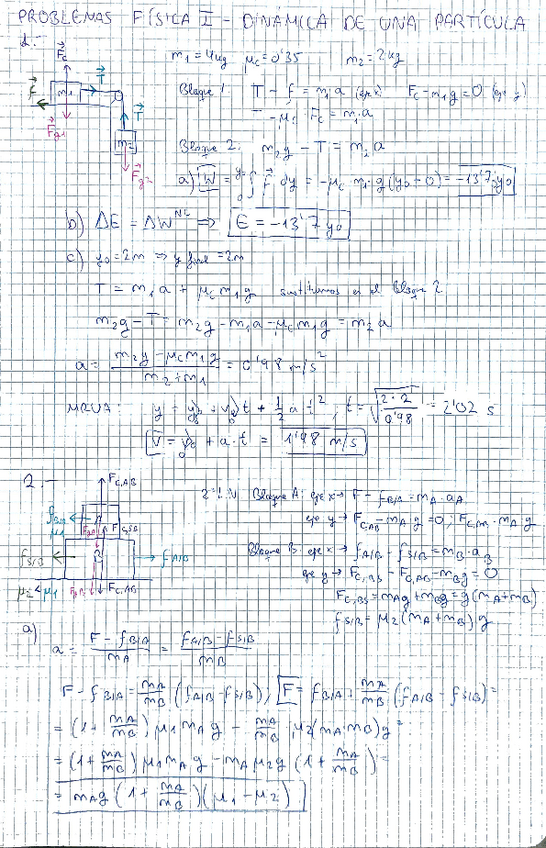 PROBLEMAS FÍSICA I - DINÁMICA DE UNA PARTÍCULA
1.-
m₁ = 4kg μc = 0'35 m₂ = 2kg
Bloque 1: T - f = m₁a (eje x) Fc - m₁g = 0 (eje y)
T - μ₁ Fc = m₁a
Bloque 2: m₂g - T = m₂a
a) W = ∫ F dy = -μc m₁ g (y₀ - 0) = -13'7y₀
b) ΔE = ΔW ⇒ E = -13'7 y₀
c) y₀ = 2m ⇒ y final = 2m
T = m₁a + μc m₁g sustituimos en el Bloque 2
m₂g - T = m₂g - m₁a - μc m₁g = m₂a
a = (m₂g - μc m₁g)/(m₂ + m₁) = 0'98 m/s²
MRUA: y = y₀ + v₀t + ½ a t² ; t = √(2·2/0'98) = 2'02 s
V = v₀ + a·t = 1'98 m/s
2.-
2ª L.N Bloque A: eje x → F - fB/A = mA·aA
eje y → FC,AB - mAg = 0 ; FC,AB = mA g
Bloque B: eje x → fA/B - fS/B = mB·aB
eje y → FC,BS - FC,AB - mBg = 0
FC,BS = mAg + mBg = g(mA + mB)
fS/B = μ₂(mA + mB)g
a)
a = (F - fB/A)/mA = (fA/B - fS/B)/mB
F - fB/A = mA/mB (fA/B - fS/B); F = fB/A + mA/mB (fA/B - fS/B) =
= (1 + mA/mB) μ₁ mA g - mA/mB μ₂(mA + mB)g =
= (1 + mA/mB) μ₁ mA g - mA μ₂ g (1 + mA/mB) =
= mA g (1 + mA/mB)(μ₁ - μ₂)